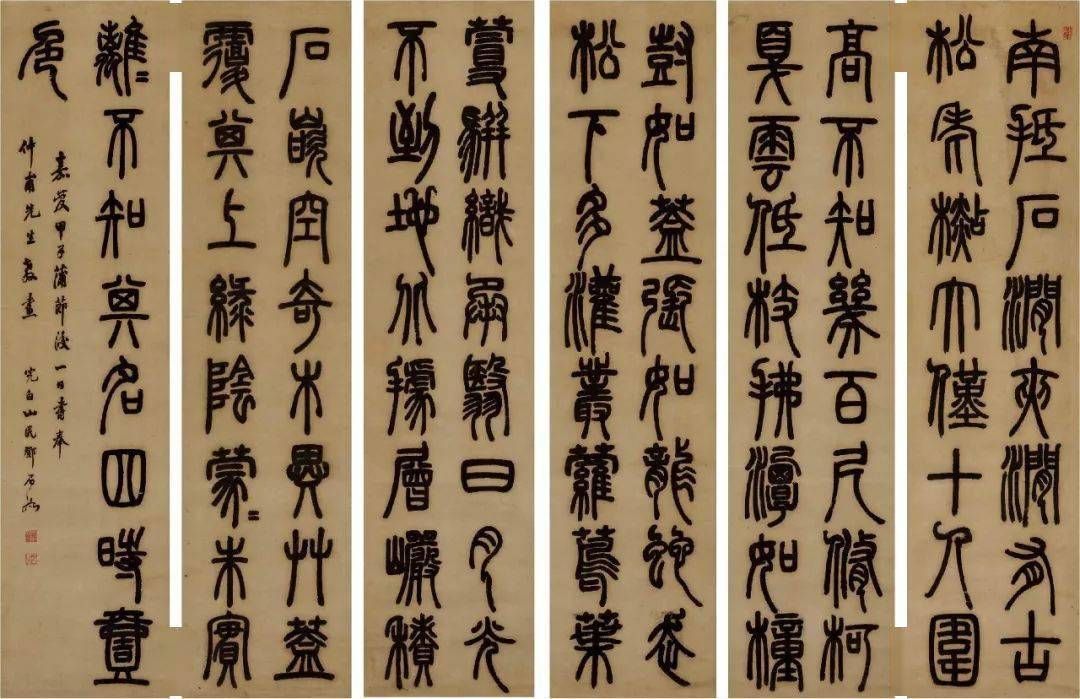 南抵石澗夾澗有古
松老檆大僅十人圍
高不知幾百尺修柯
戛雲低枝拂潭如橦
尌如蓋張如龍蛇走
松下多灌叢蘿蔦葉
蔓駢織承翳日月光
不到地據層巖積
石嵌空奇木異艸蓋
覆其上綠陰蒙〻朱實
離〻不知其名四時壹
色
嘉慶甲子蒲節後一日書奉
仲甫先生教畫 完白山民鄧石如